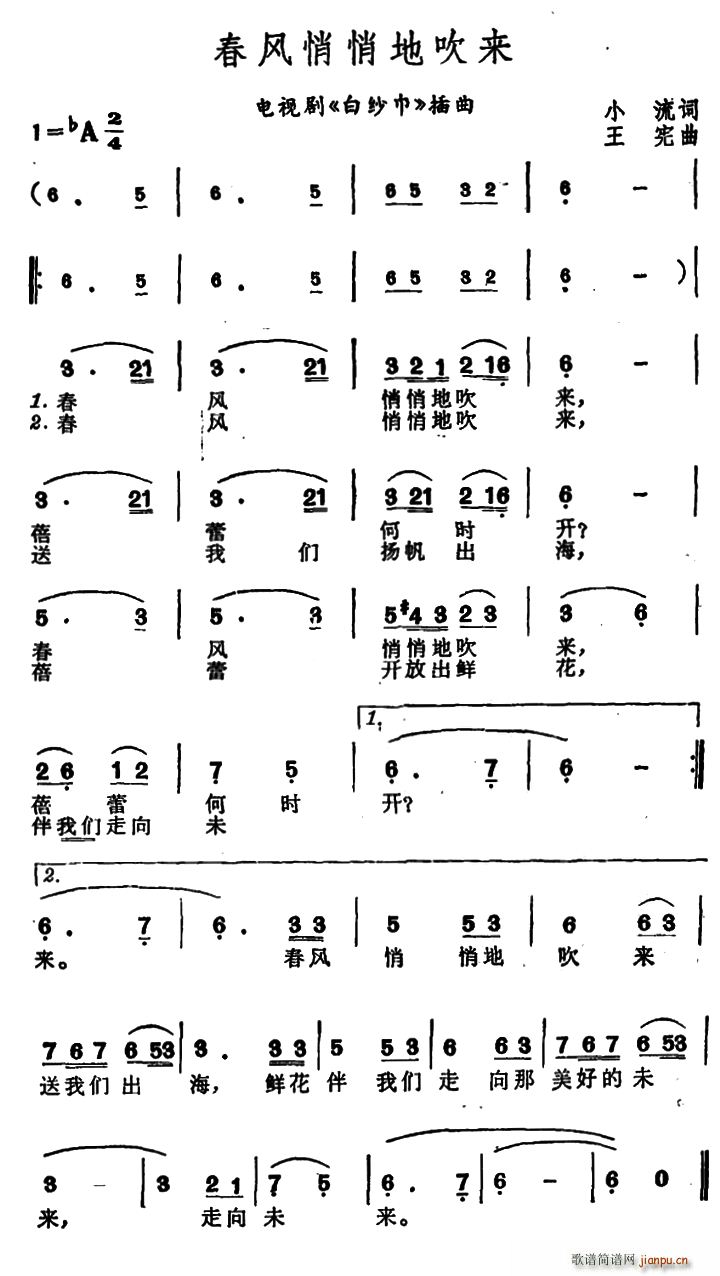 春风悄悄地吹来
电视剧《白纱巾》插曲
小流词
1=♭A 2/4
王宪曲
(6. 5 | 6. 5 | 65 32 | 6 - |
‖: 6. 5 | 6. 5 | 65 32 | 6 - ) |
3. 21 | 3. 21 | 321 216 | 6 - |
1.春 风 悄悄地吹 来,
2.春 风 悄悄地吹 来,
3. 21 | 3. 21 | 321 216 | 6 - |
蓓 蕾 何 时 开?
送 我 们 扬帆出 海,
5. 3 | 5. 3 | 5#43 23 | 3 6 |
春 风 悄悄地吹 来,
蓓 蕾 开放出鲜 花,
1.
26 12 | 7 5 | 6. 7 | 6 - :‖
蓓 蕾 何 时 开?
伴我们走向 未
2.
6. 7 | 6. 33 | 5 53 | 6 63 |
来。 春风 悄 悄地 吹 来
767 653 | 3. 33 | 5 53 | 6 33 | 767 653 |
送我们出 海, 鲜花 伴 我们 走 向那 美好的未
3 - | 3 21 | 7 5 | 6. 7 | 6 - | 6 0 ‖
来, 走向 未 来。
歌谱简谱网 jianpu.cn